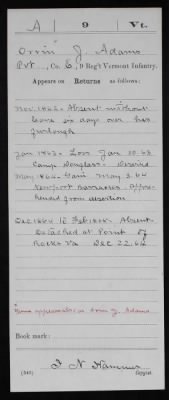 A 9 Vt.
Orrin J. Adams
Pvt., Co. E, 9 Reg't Vermont Infantry.
Appears on Returns as follows:
Nov. 1862- Absent without
leave six days over his
furlough
Jan 1863- Loss Jan 20.63
Camp Douglass- Deserted
May 1864- Gain May 3.64
Newport Barracks Appre-
hended from desertion
Dec 1864 to Feb 1865- Absent-
Detached at Point of
Rocks Va Dec 22.64
Name appears also as Orrin J. Adams
Book mark:
(546)
Copyist.